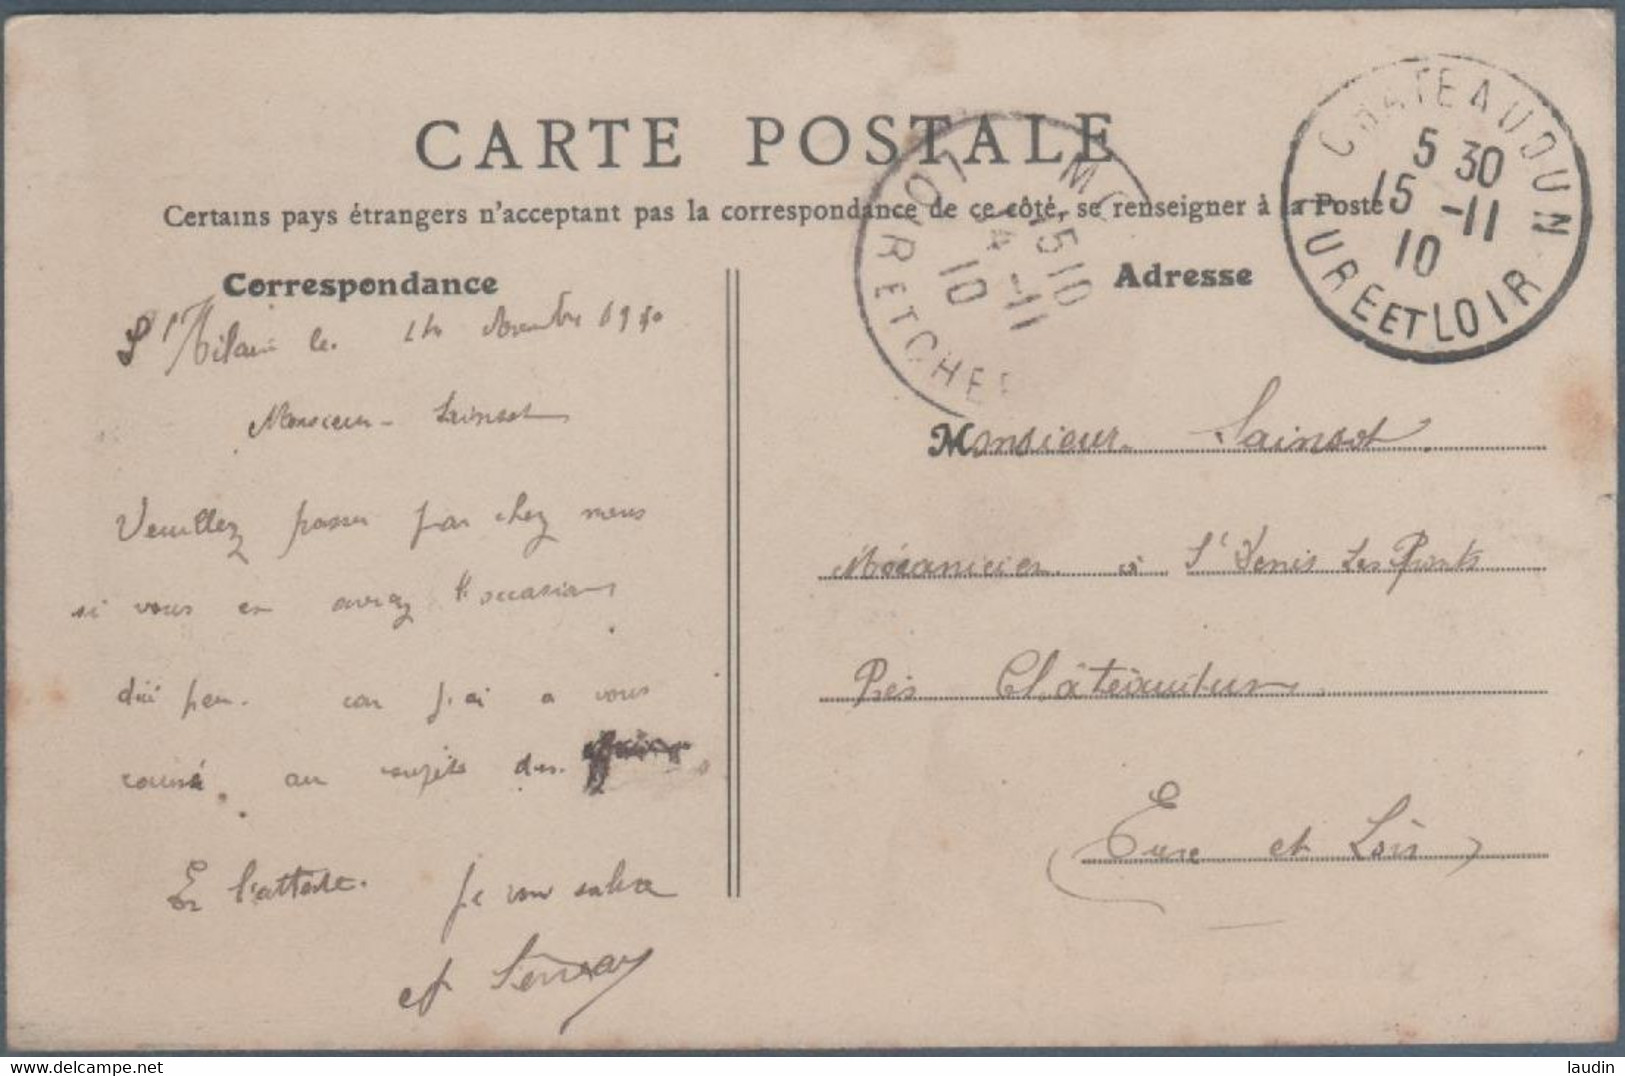 CARTE POSTALE
Certains pays étrangers n'acceptent pas la correspondance de ce côté, se renseigner à la Poste
Correspondance
Adresse
CHATEAUDUN
5 30
15 -11
10
EURE ET LOIR
MO
15 10
14 -11
10
LOIR ET CHER
St Hilaire le 14 Novembre 1910
Monsieur Sainsot
Veuillez passer par chez nous
si vous en avez l'occasion
d'ici peu. car j'ai a vous
causé au sujet des
En l'attente. Je vous salue
Monsieur Sainsot
Mécanicien à St Denis Les Ponts
Près Châteaudun
Eure et Loir
delcampe.net
laudin